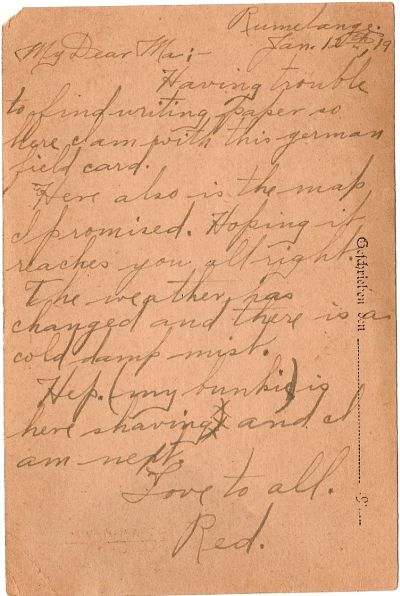 Rumelange.
Jan. 12th, 19
My Dear Ma:-
Having trouble
to find writing paper so
here I am with this german
field card.
Here also is the map
I promised. Hoping it
reaches you all right.
The weather has
changed and there is a
cold damp mist.
Hep. (my bunkie) is
here shaving) and I
am next.
Love to all.
Red.
Geschrieben den